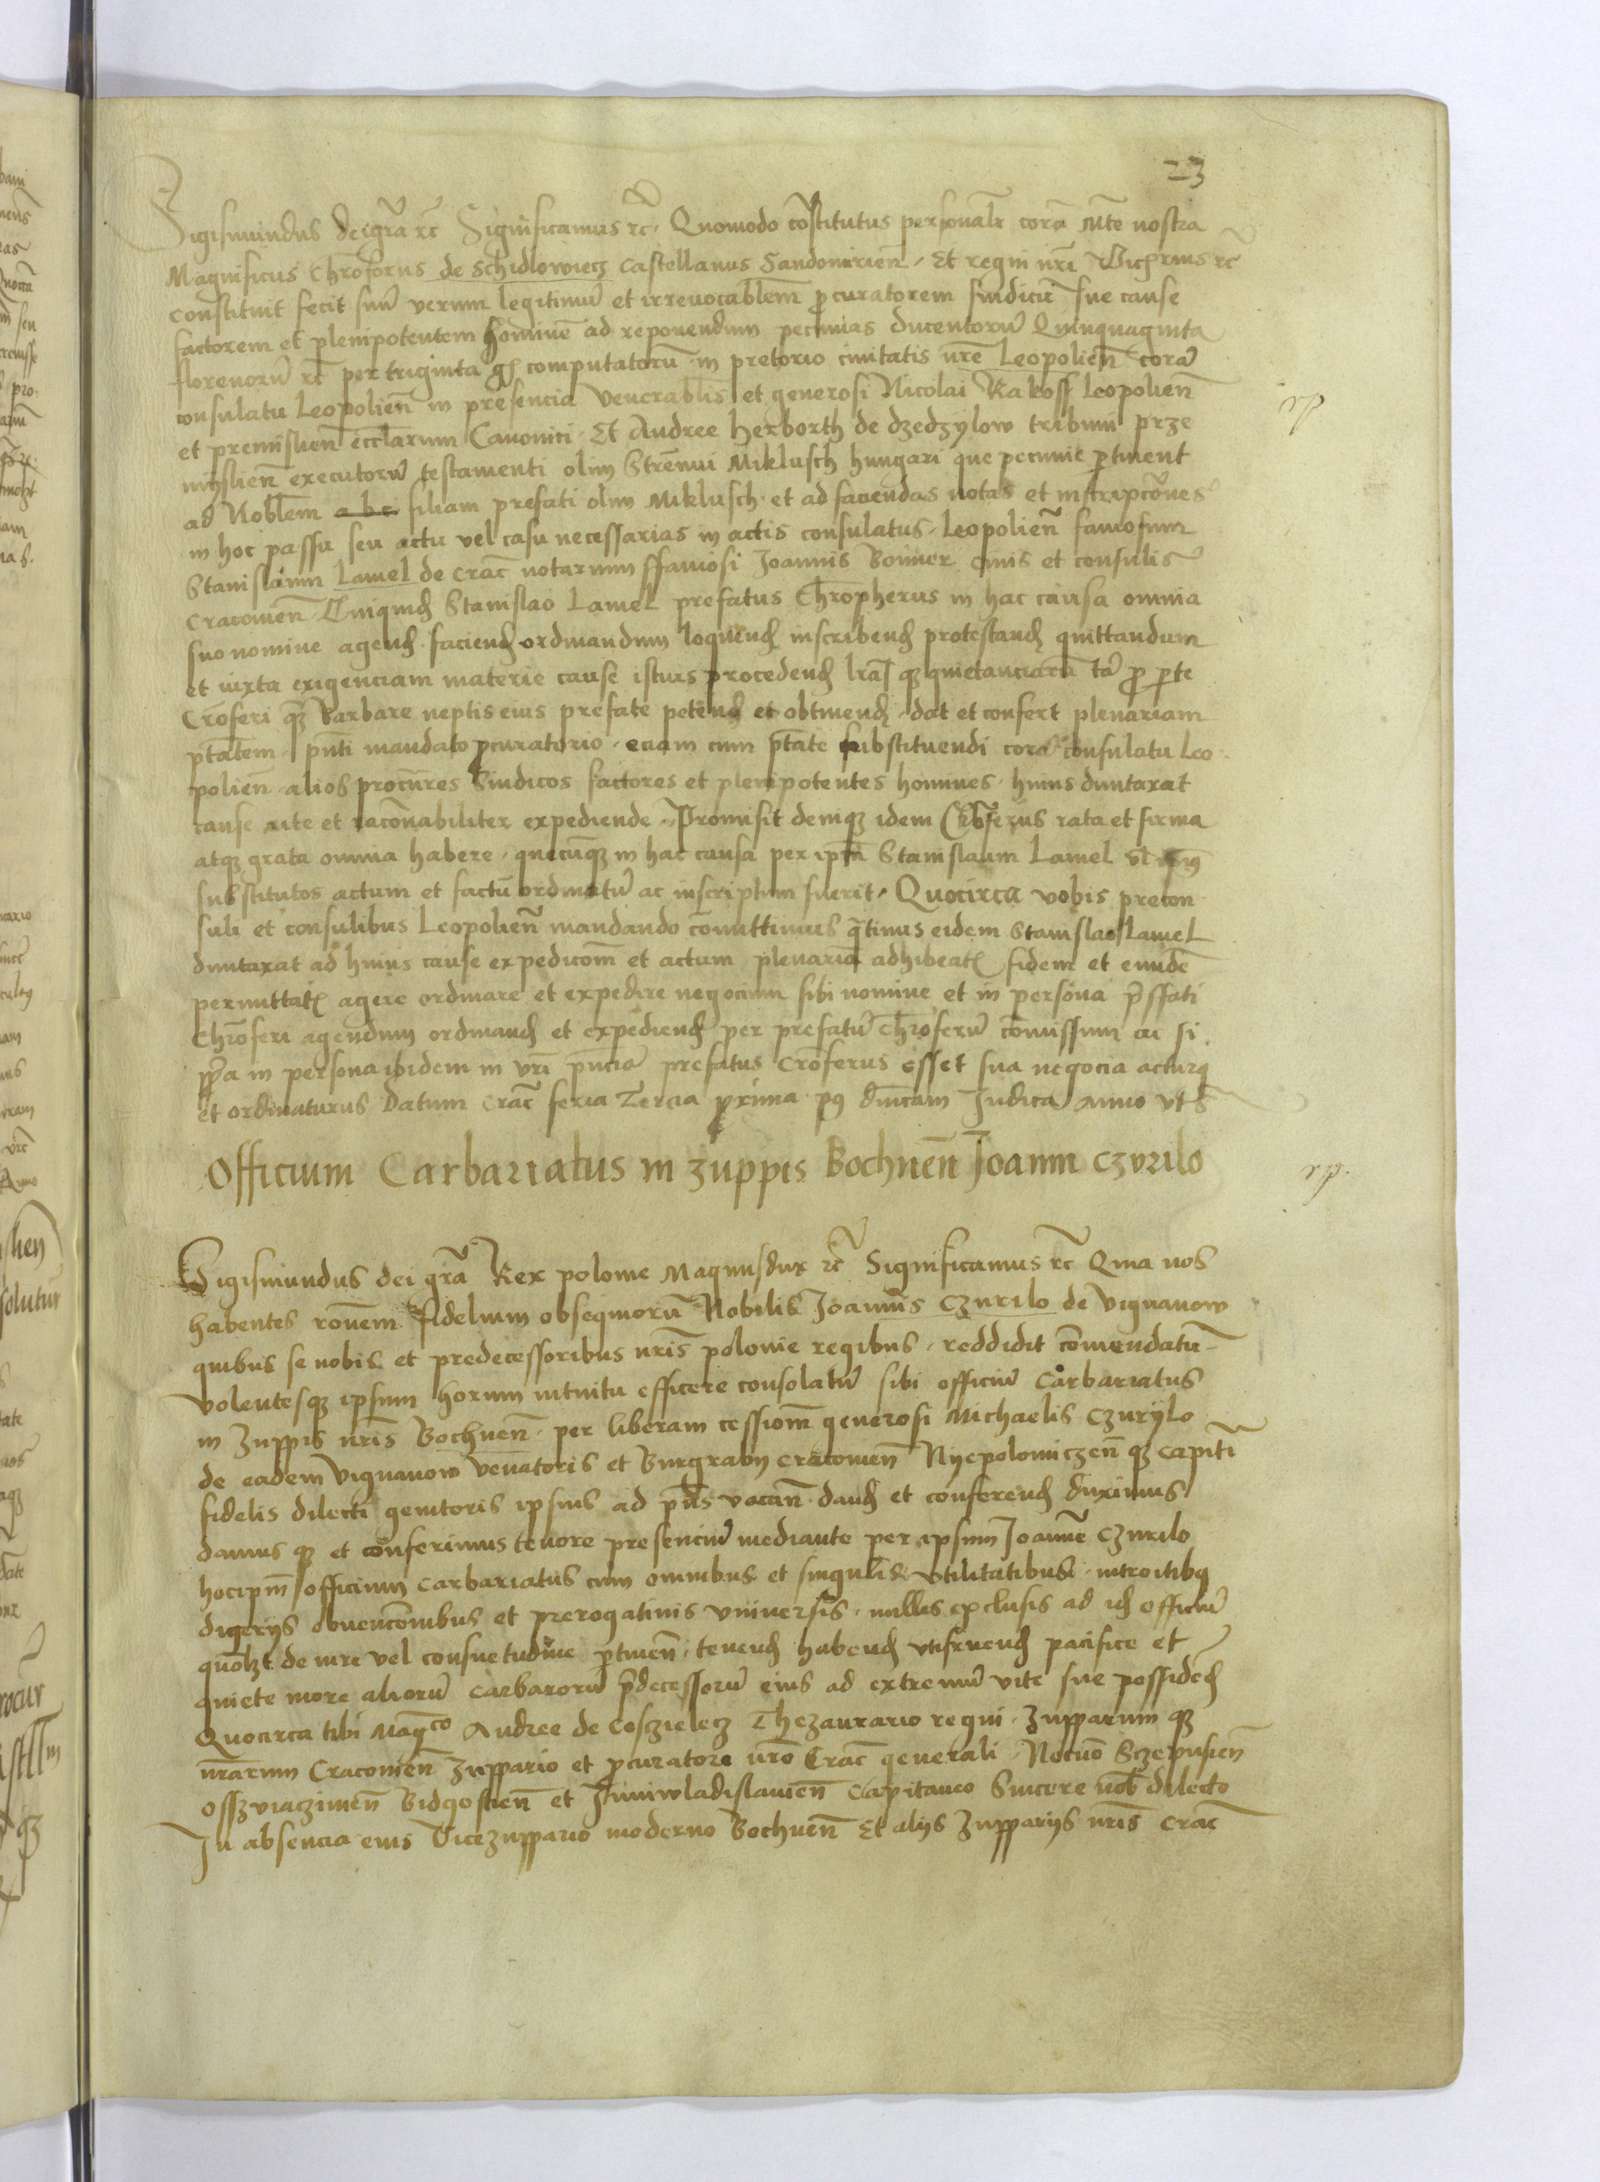 23
Sigismundus dei grã rc̃ Significamus rc̃ Quomodo cõstitutus personalr̃ corã Mte nostra
Magnificus Chroforus de Schidlowiecz Castellanus Sandomirieñ. Et regni nrĩ Vic rc̃
constituit fecit suũ verum legitimũ et irrevocablem̃ procuratorem sindicũ sue cause
factorem et plenipotentem hominẽ ad reponendum pecunias ducentorũ Quinquaginta
florenorũ rc̃ per triginta gš computatorũ in pretorio civitatis nrẽ Leopolieñ corã
consulatu Leopolieñ in presencia venerablis et generosi Nicolai Rakoff Leopolieñ
et premislieñ eccl̃arum Canonici. Et Andree Herborth de dzedzylow tribuni prze
myslieñ executorũ testamenti olim Strẽnui Miklusch hungari que pecunie ptinent
ad Noblem̃ filiam prefati olim Miklusch et ad faciendas notas et inscripcões
in hoc passu seu actu vel casu necessarias in actis consulatus Leopolieñ famosum
Stanislaum Lamel de Crac̃ notarium ffamosi Joannis Bonner civis et consulis
Cracovieñ. Cuiquidẽ Stanislao Lamel prefatus Christopherus in hac causa omnia
suo nomine agend faciend ordinandum loquend inscribend protestand quittandum
et iuxta exigenciam materie cause istius procedend lrãs qz quietanciarũ tã pro pte
Crõferi qz Barbare neptis eius prefate petend et obtinend. dat et confert plenariam
ptatem. pñti mandato procuratorio. eciam cum ptate substituendi corã consulatu Leo
polieñ alios procures Sindicos factores et plenipotentes homines. huius duntaxat
cause rite et racõnabiliter expediende. Promisit deniqz idem Chroferus rata et firma
atqz grata omnia habere. quecũqz in hac causa per ipm̃ Stanislaum Lamel
substitutos actum et factũ ordinatũ ac inscriptum fuerit. Quocirca vobis precon
suli et consulibus Leopolieñ mandando cõmittimus qtinus eidem Stanislao Lamel
duntaxat ad huius cause expedicõm et actum plenariã adhibeatis fidem et eundẽ
permittatis agere ordinare et expedire negocium sibi nomine et in persona prffati
Chroferi agendum ordinand et expediend per prefatũ Chroferũ cõmissum ac si
ppa in persona ibidem in vrĩ pñcia prefatus Crõferus esset sua negocia acturus
et ordinaturus Datum Crac̃ feria Tercia proxima pꝰ dnĩcam Judica anno vts̃
Officium Carbariatus in zuppis Bochneñ Joanni Czurilo
Sigismundus dei grã Rex polonie Magnusdux rc̃ Significamus rc̃ Quia nos
habentes rõnem fidelium obsequiorũ Nobilis Joannis Czurilo de Vignanow
quibus se nobis et predecessoribus nrĩs polonie regibus. reddidit cõmendatũ
volentesqz ipsum horum intuitu efficere consolatũ sibi officiũ Carbariatus
in Zuppis nrĩs Bochneñ. per liberam cessiom̃ generosi Michaelis Czurylo
de eadem Vignanow venatoris et Burgraby Cracovieñ Nyepolomiczeñ qz Capitĩ
fidelis dilecti genitoris ipsius ad pñs vacañ. dand et conferend duximus
damus qz et conferimus tenore presenciũ mediante per ipsum Joannẽ Czurilo
hocipm̃ officium carbariatus cum omnibus et singulis utilitatibus. introitibꝰ
digerijs obvencõnibus et prerogativis universis. nullis exclusis ad id officiũ
quolzt de iure vel consuetudine ptineñ. tenend habend utifruend pacifice et
quiete more aliorũ carbarorũ prdecessorũ eius ad extremũ vite sue possidend
Quocirca tibi Magco Andree de Cosczielecz Thezaurario regni. Zupparum qz
nrarum Cracovieñ Zuppario et procuratori nrõ Crac̃ generali. Necnõ Sczepusieñ
Osszviaczimeñ Bidgostieñ et Juniwladislavieñ Capitaneo Sincere nob̃ dilecto
In absencia eius Vicezuppario moderno Bochneñ Et alijs Zupparijs nrĩs Crac̃
rp
rp.